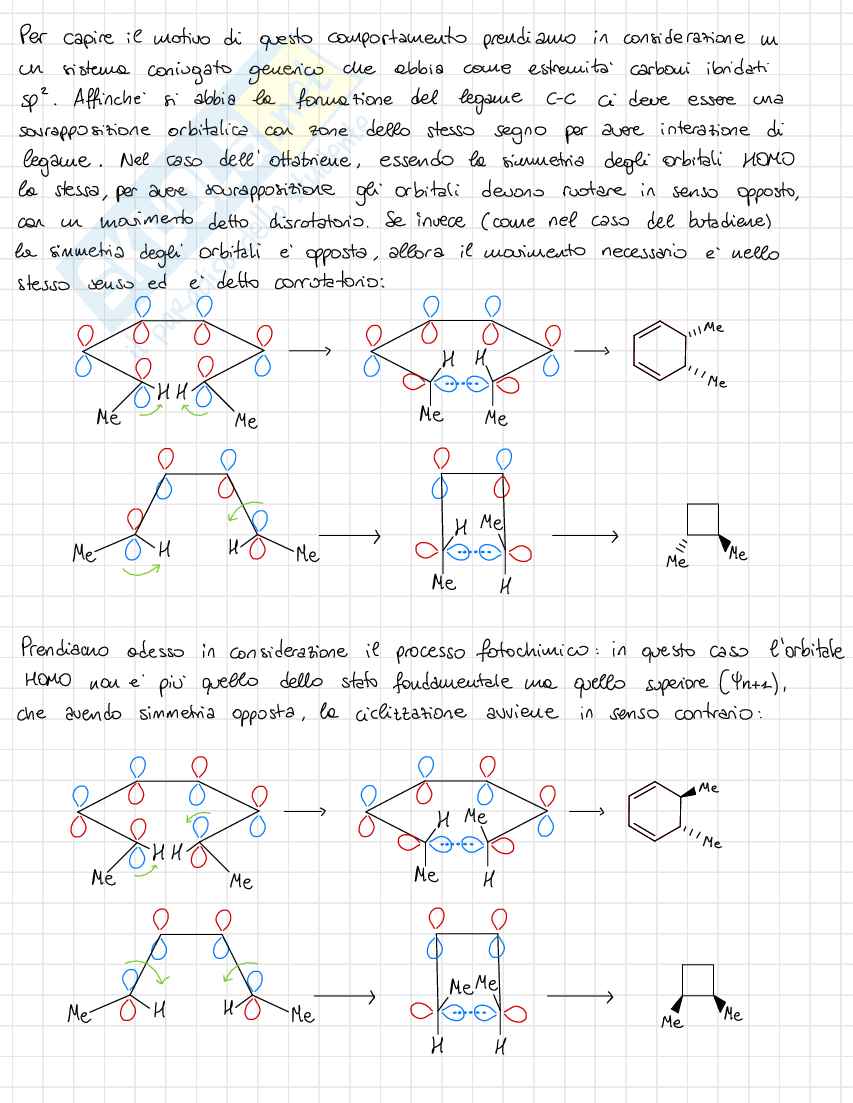 Per capire il motivo di questo comportamento prendiamo in considerazione un
un sistema coniugato generico che abbia come estremità carboni ibridati
sp². Affinché si abbia la formazione del legame C-C ci deve essere una
sovrapposizione orbitalica con zone dello stesso segno per avere interazione di
legame. Nel caso dell'ottatriene, essendo la simmetria degli orbitali HOMO
la stessa, per avere sovrapposizione gli orbitali devono ruotare in senso opposto,
con un movimento detto disrotatorio. Se invece (come nel caso del butadiene)
la simmetria degli orbitali è opposta, allora il movimento necessario è nello
stesso senso ed è detto conrotatorio:
H H Me Me
H H Me Me
Me Me
Me H H Me
H Me Me H
Me Me
Prendiamo adesso in considerazione il processo fotochimico: in questo caso l'orbitale
HOMO non è più quello dello stato fondamentale ma quello superiore (Ψn+1),
che avendo simmetria opposta, la ciclizzazione avviene in senso contrario:
H H Me Me
H Me Me H
Me Me
Me H H Me
Me Me H H
Me Me